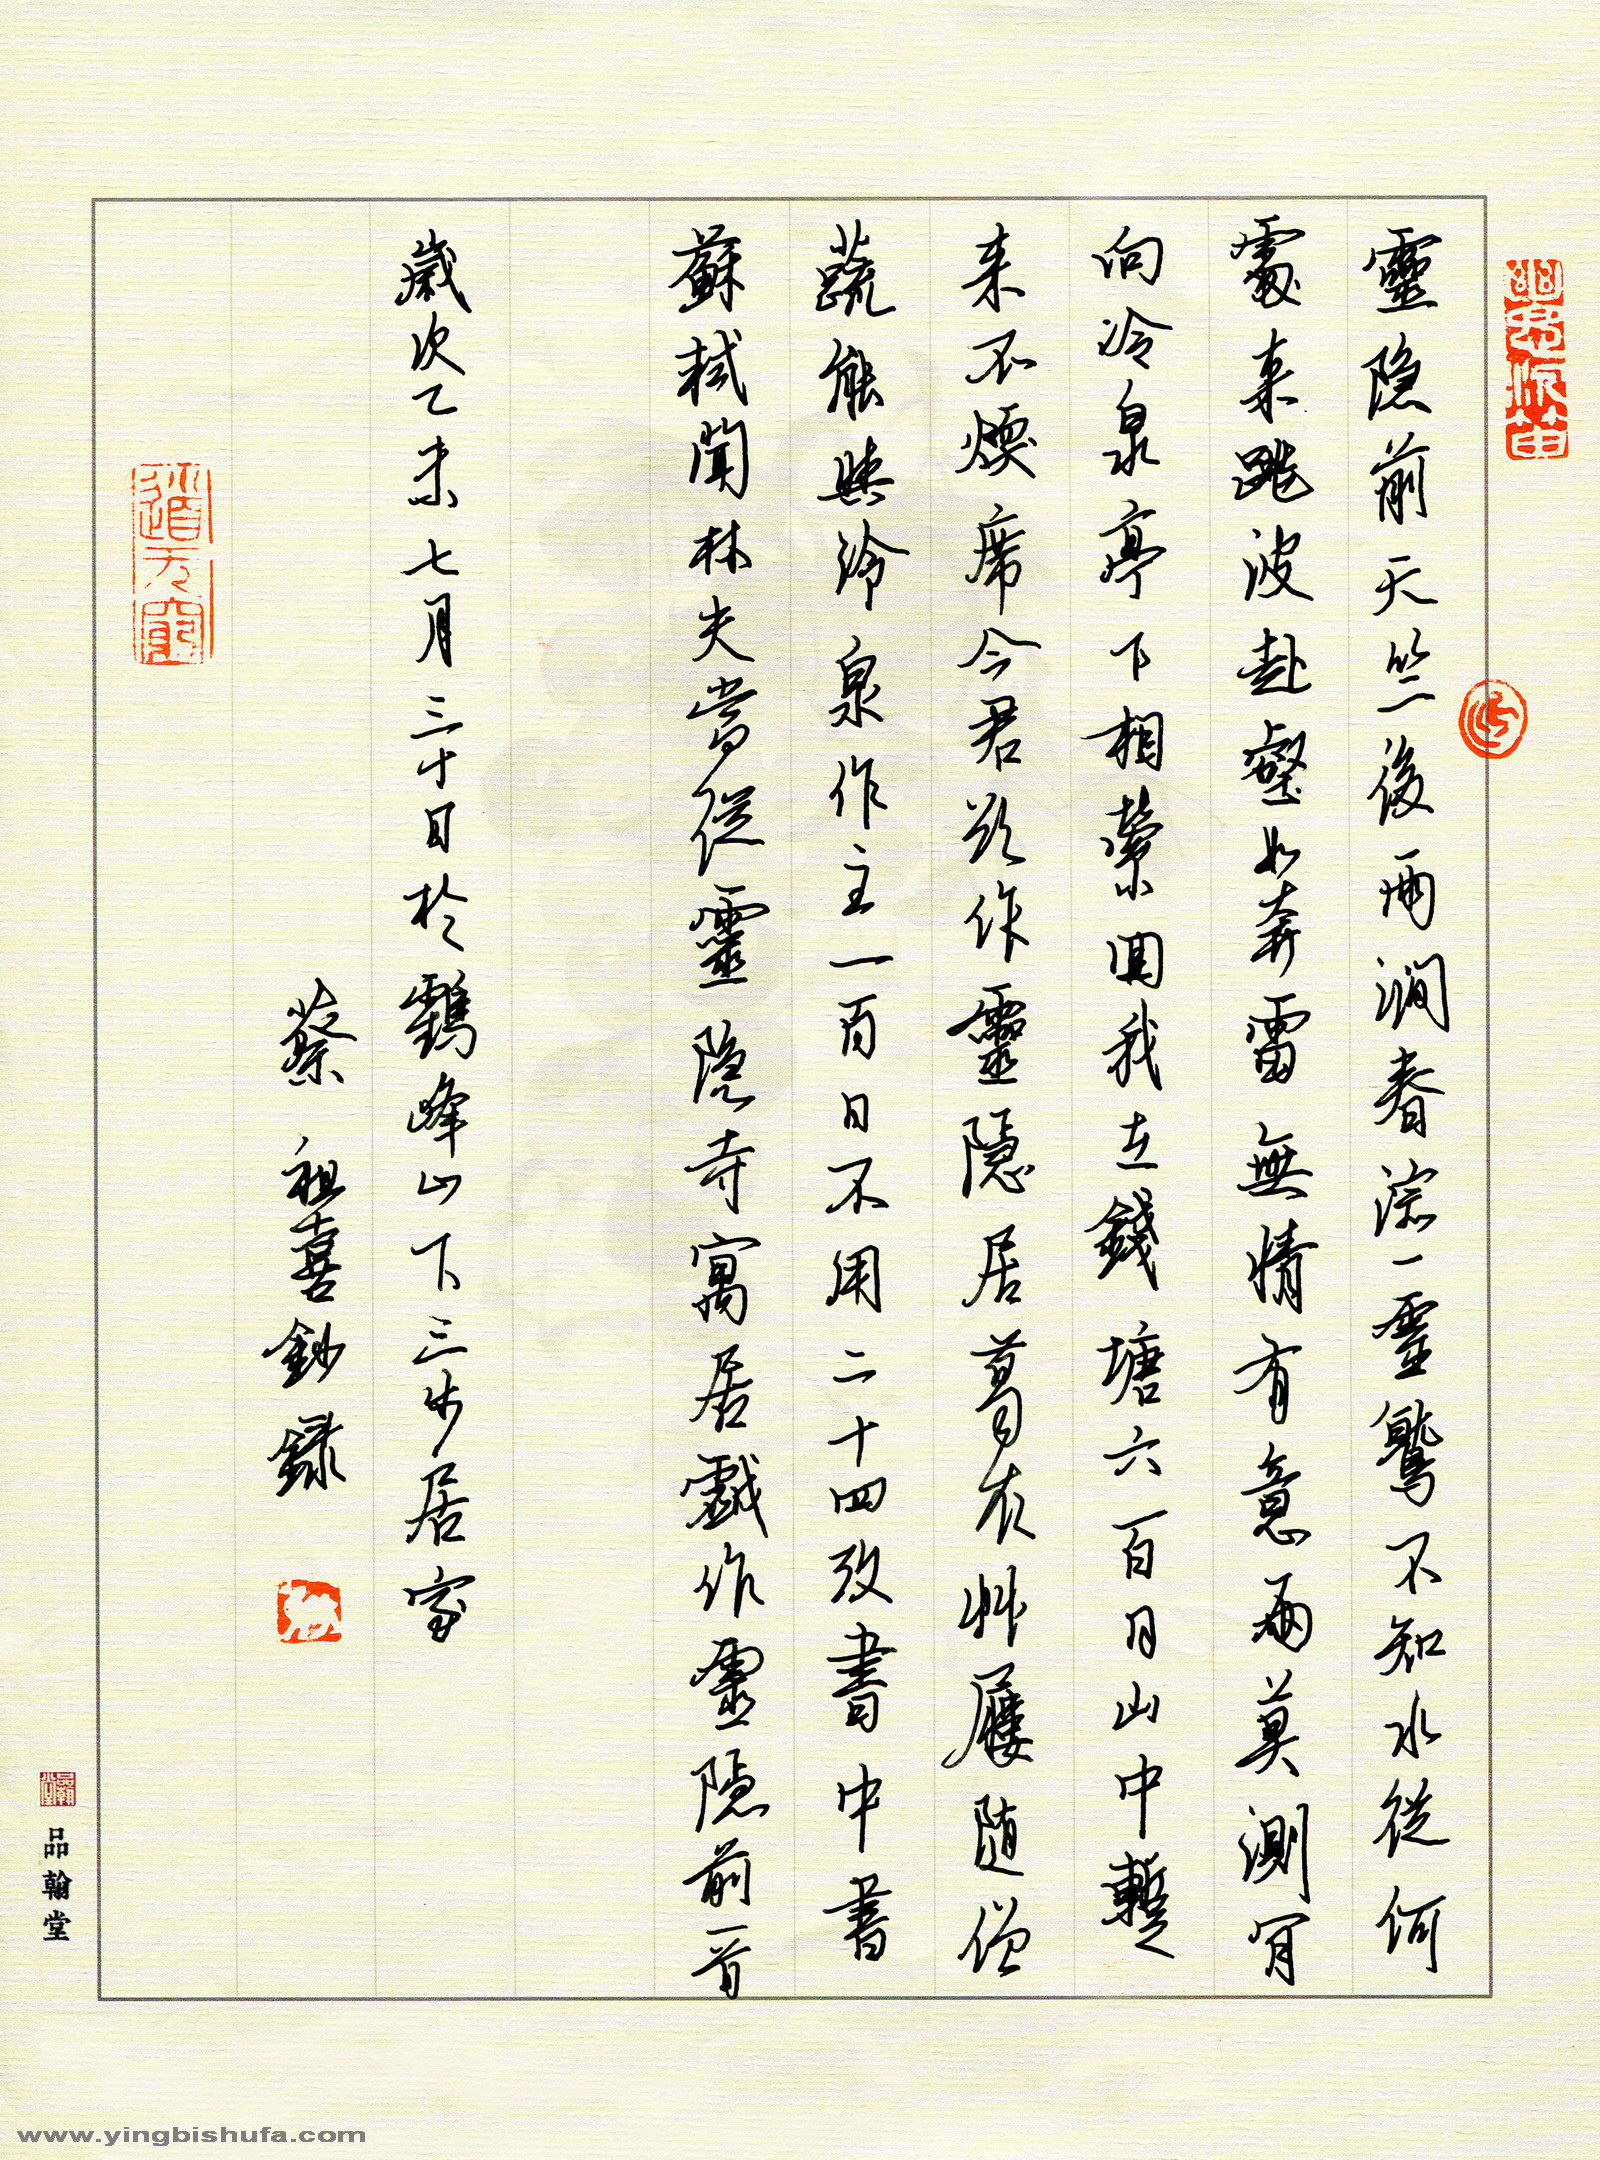 靈隐前天竺後兩澗春淙一靈鷲不知水從何
處来跳波赴壑如奔雷無情有意兩莫測肎
向冷泉亭下相縈囬我在錢塘六百日山中暫
来不煖席今君欲作靈隐居葛衣艸屨随僧
蔬能與冷泉作主一百日不用二十四攷書中書
蘇軾聞林夫當徙靈隐寺寓居戲作靈隐前一首
歲次乙未七月三十日於鶴峰山下三步居
蔡祖喜鈔録
道无窮
品翰堂
www.yingbishufa.com